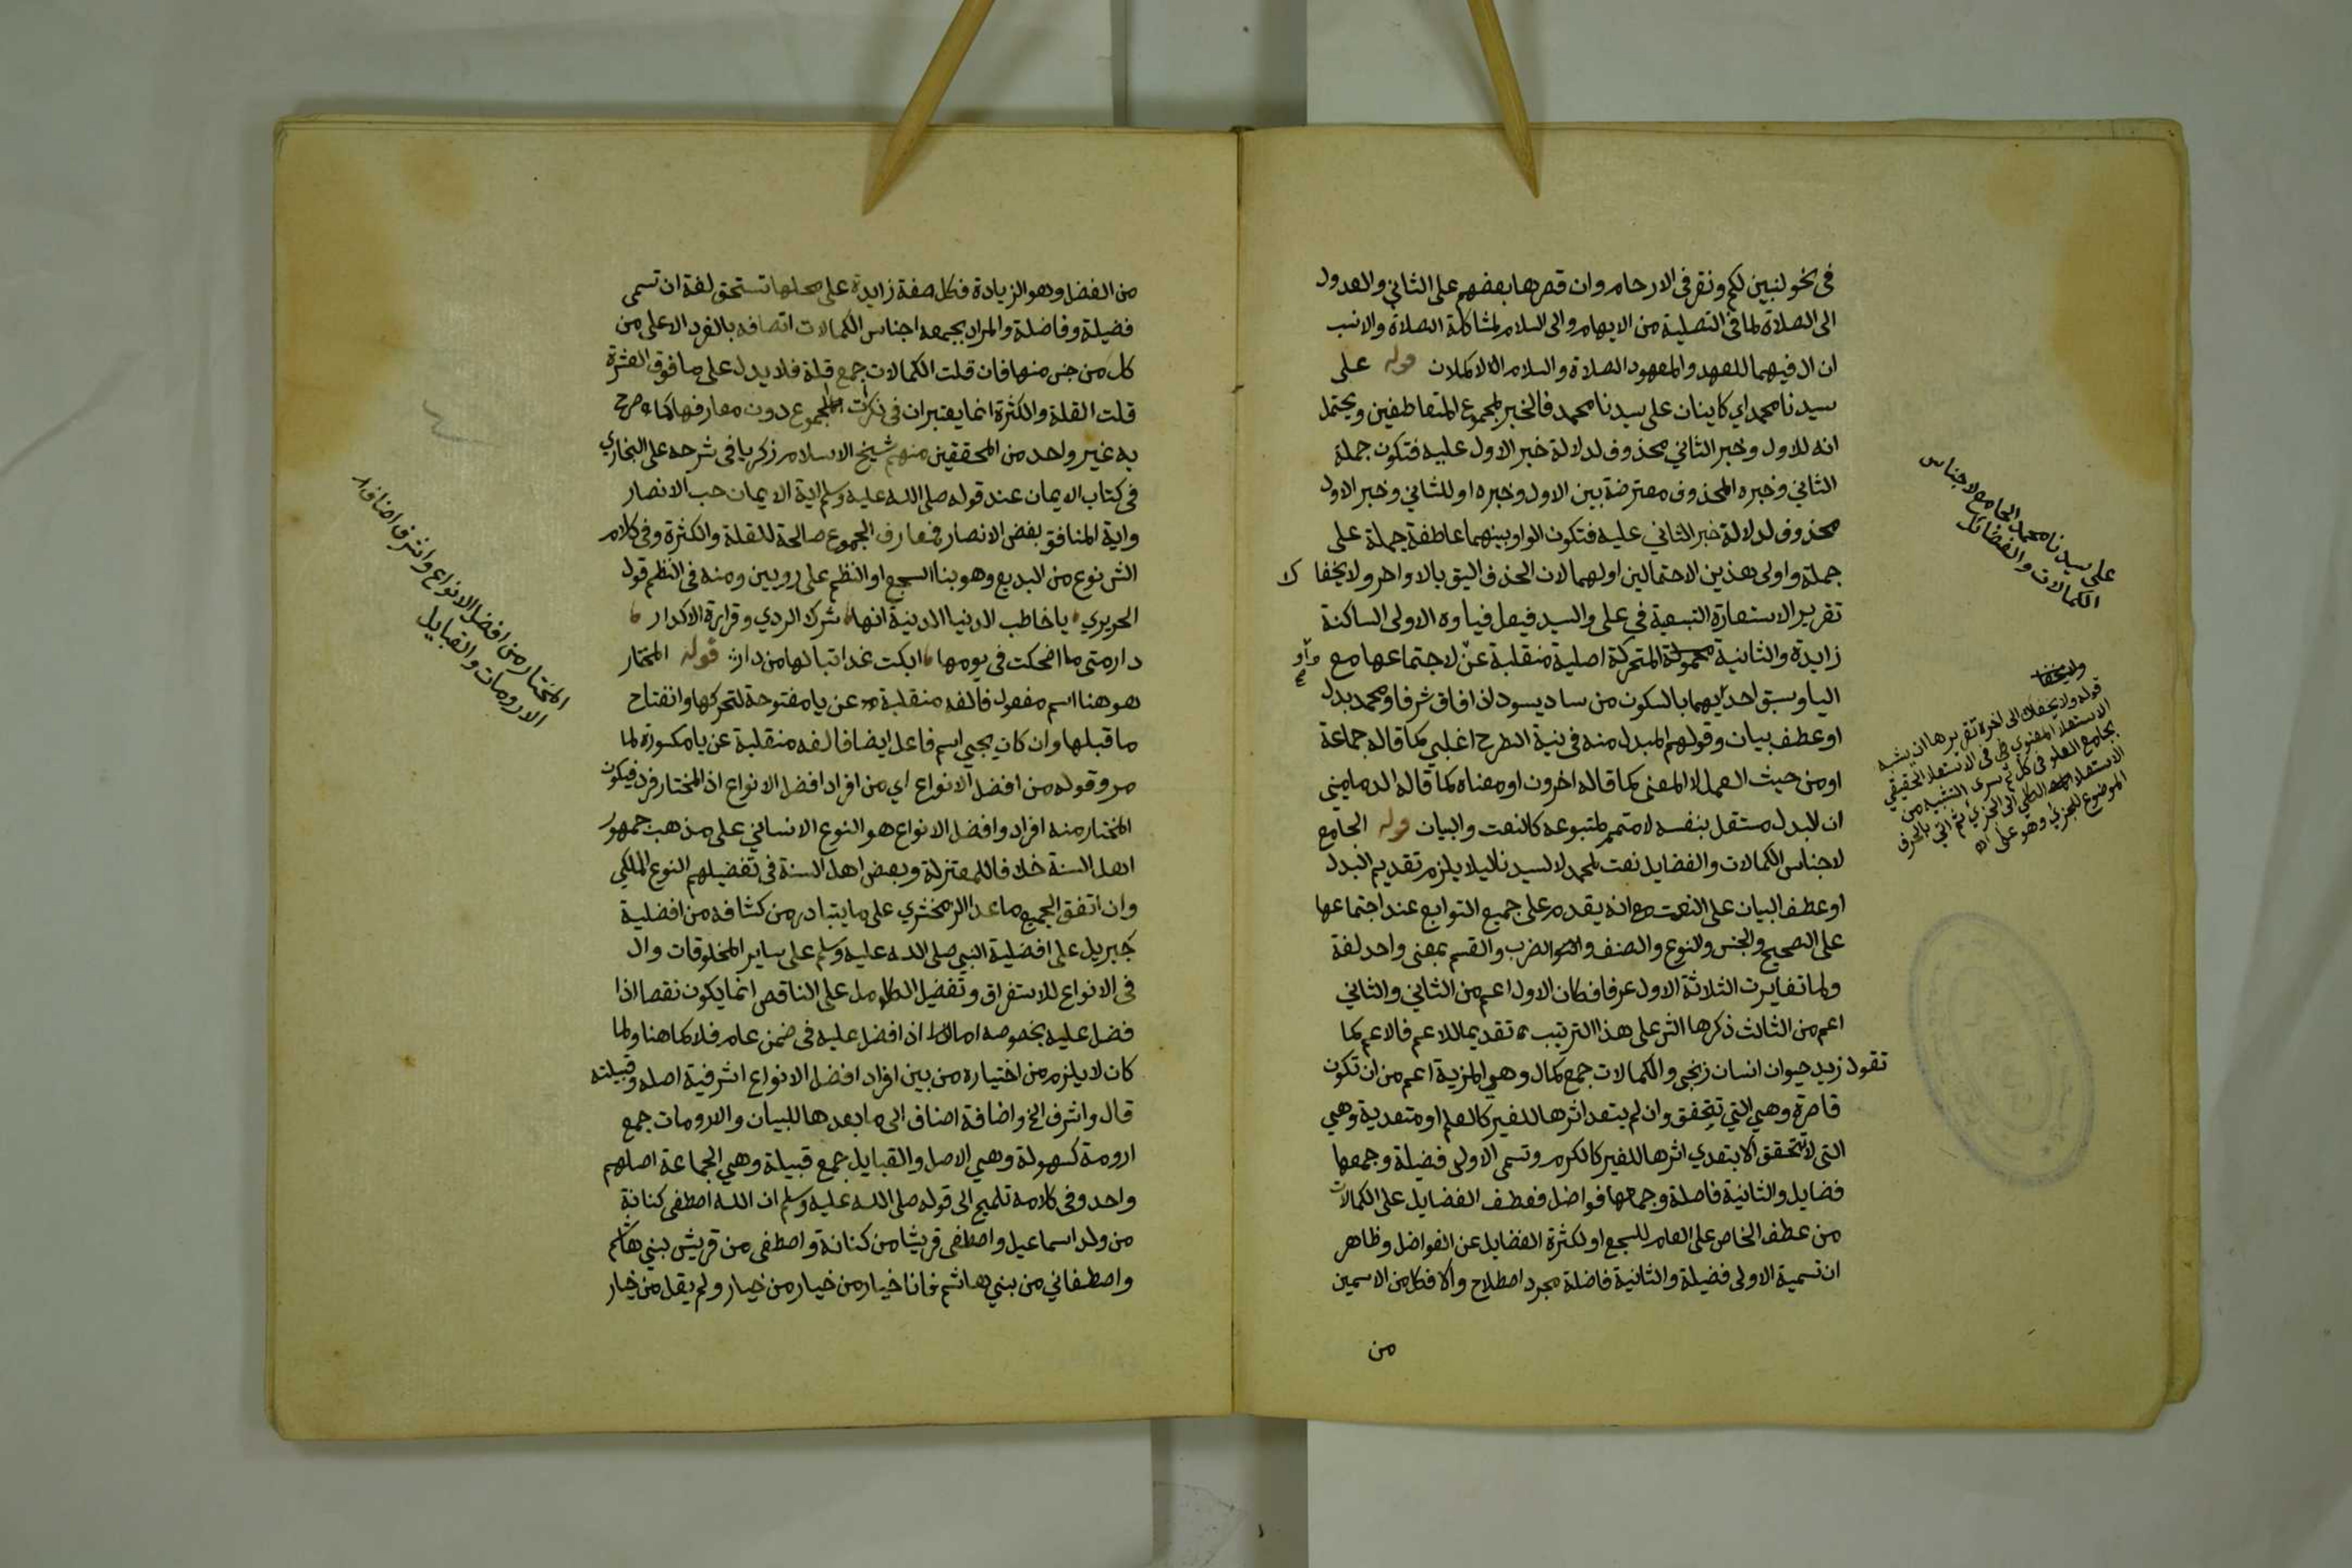 في نحو لنبين لكم ونقر في الارحام وان قصرها بعضهم على الثاني والعدول
الى الصلاة لما في التصلية من الايهام والى السلام لمشاكلة الصلاة والانسب
ان ال فيهما للعهد والمعهود الصلاة والسلام الاكملان قوله على
سيدنا محمد اي كاينان على سيدنا محمد فالخبر لمجموع المتعاطفين ويحتمل
انه للاول وخبر الثاني محذوف لدلالة خبر الاول عليه فتكون جملة
الثاني وخبره المحذوف معترضة بين الاول وخبره او للثاني وخبر الاول
محذوف لدلالة خبر الثاني عليه فتكون الواو بينهما عاطفة جملة على
جملة واولى هذين الاحتمالين اولهما لان الحذف اليق بالاواخر ولا يخفا ك
تقرير الاستعارة التبعية في على والسيد فيعل فياوه الاولى الساكنة
زايدة والثانية المتحركة اصلية منقلبة عن واو لاجتماعها مع
اليا وسبق احديهما بالسكون من ساد يسود اذا فاق شرفا ومحمد بدل
او عطف بيان وقولهم المبدل منه في نية الطرح اغلبي كما قاله جماعة
او من حيث العمل لا المعنى كما قاله اخرون او معناه كما قاله الدماميني
ان البدل مستقل بنفسه لا متمم لمتبوعه كالنعت والبيان قوله الجامع
لاجناس الكمالات والفضايل نعت لمحمد لا لسيدنا ليلا يلزم تقديم البدل
او عطف البيان على النعت مع انه يقدم على جميع التوابع عند اجتماعها
على الصحيح والجنس والنوع والصنف والضرب والقسم بمعنى واحد لغة
ولما تغايرت الثلاثة الاول عرفا فكان الاول اعم من الثاني والثاني
اعم من الثالث ذكرها الش على هذا الترتيب تقديما للاعم فالاعم كما
تقول زيد حيوان انسان زنجي والكمالات جمع كمال وهي المزية اعم من ان تكون
قاصرة وهي التي تتحقق وان لم يتعد اثرها للغير كالعلم او متعدية وهي
التي لا تتحقق الا بتعدي اثرها للغير كالكرم وتسمى الاولى فضيلة وجمعها
فضايل والثانية فاضلة وجمعها فواضل فعطف الفضايل على الكمالات
من عطف الخاص على العام للسجع او لكثرة الفضايل عن الفواضل وظاهر
ان تسمية الاولى فضيلة والثانية فاضلة مجرد اصطلاح والا فكل من الاسمين
من
على سيدنا محمد الجامع لاجناس
الكمالات والفضائل
ولا يخفا
قوله ولا يخفاك الى اخره تقريرها ان يشبه
الاستعلا المعنوي في الاستعلا الحقيقي
بجامع العلو في كل ثم سرى التشبيه من
الاستعلا الكلي الى الجزئي ثم اتي بالحرف
الموضوع للجزئي وهو على اه
من الفضل وهو الزيادة فكل صفة زايدة على محلها تستحق لغة ان تسمى
فضيلة وفاضلة والمراد بجمعه اجناس الكمالات اتصافه بالفرد الاعلى من
كل من جنس منها فان قلت الكمالات جمع قلة فلا يدل على ما فوق العشرة
قلت القلة والكثرة انما يعتبران في نكرات الجموع دون معارفها كما صرح
به غير واحد من المحققين منهم شيخ الاسلام زكريا في شرحه على البخاري
في كتاب الايمان عند قوله صلى الله عليه وسلم اية الايمان حب الانصار
واية المنافق بغض الانصار فمعارف الجموع صالحة للقلة والكثرة وفي كلام
الش نوع من البديع وهو بنا السجع او النظم على رويين ومنه في النظم قول
الحريري يا خاطب الدنيا الدنية انها شرك الردي وقرارة الاكدار
دار متى ما اضحكت في يومها ابكت غدا تبا لها من دار قوله المختار
هو هنا اسم مفعول فالفه منقلبة عن يا مفتوحة لتحركها وانفتاح
ما قبلها وان كان يجيي اسم فاعل ايضا فالفه منقلبة عن يا مكسورة لما
مر وقوله من افضل الانواع اي من افراد افضل الانواع اذ المختار فرد فيكون
المختار منه افراد وافضل الانواع هو النوع الانساني على مذهب جمهور
اهل السنة خلافا للمعتزلة وبعض اهل السنة في تفضيلهم النوع الملكي
وان اتفق الجميع ما عدا الزمخشري على ما يتبادر من كشافه من افضلية
جبريل على افضلية النبي صلى الله عليه وسلم على ساير المخلوقات وال
في الانواع للاستغراق وتفضيل الكامل على الناقص انما يكون نقصا اذا
فضل عليه بخصوصه اما اذا فضل عليه في ضمن عام فلا كما هنا ولما
كان لا يلزم من اختياره من بين افراد افضل الانواع اشرفية اصله وقبيلته
قال واشرف الخ واضافة اصناف الى ما بعدها للبيان والارومات جمع
ارومة كسهولة وهي الاصل والقبايل جمع قبيلة وهي الجماعة اصلهم
واحد وفي كلامه تلميح الى قوله صلى الله عليه وسلم ان الله اصطفى كنانة
من ولد اسماعيل واصطفى قريشا من كنانة واصطفى من قريش بني هاشم
واصطفاني من بني هاشم فانا خيار من خيار من خيار ولم يقل من خيار
المختار من افضل الانواع واشرف اصناف
الارومات والقبايل